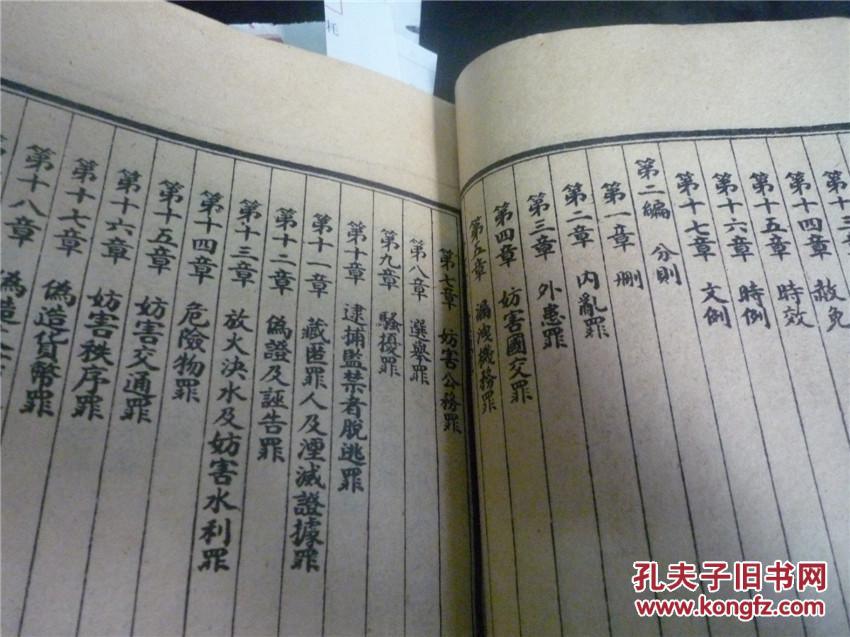 第十三章 赦免
第十四章 時效
第十五章 時例
第十六章 文例
第十七章
第二編 分則
第一章 刪
第二章 內亂罪
第三章 外患罪
第四章 妨害國交罪
第五章 漏洩機務罪
第七章 妨害公務罪
第八章 選舉罪
第九章 騷擾罪
第十章 逮捕監禁者脫逃罪
第十一章 藏匿罪人及湮滅證據罪
第十二章 偽證及誣告罪
第十三章 放火決水及妨害水利罪
第十四章 危險物罪
第十五章 妨害交通罪
第十六章 妨害秩序罪
第十七章 偽造貨幣罪
第十八章 偽造文
孔夫子旧书网
www.kongfz.com